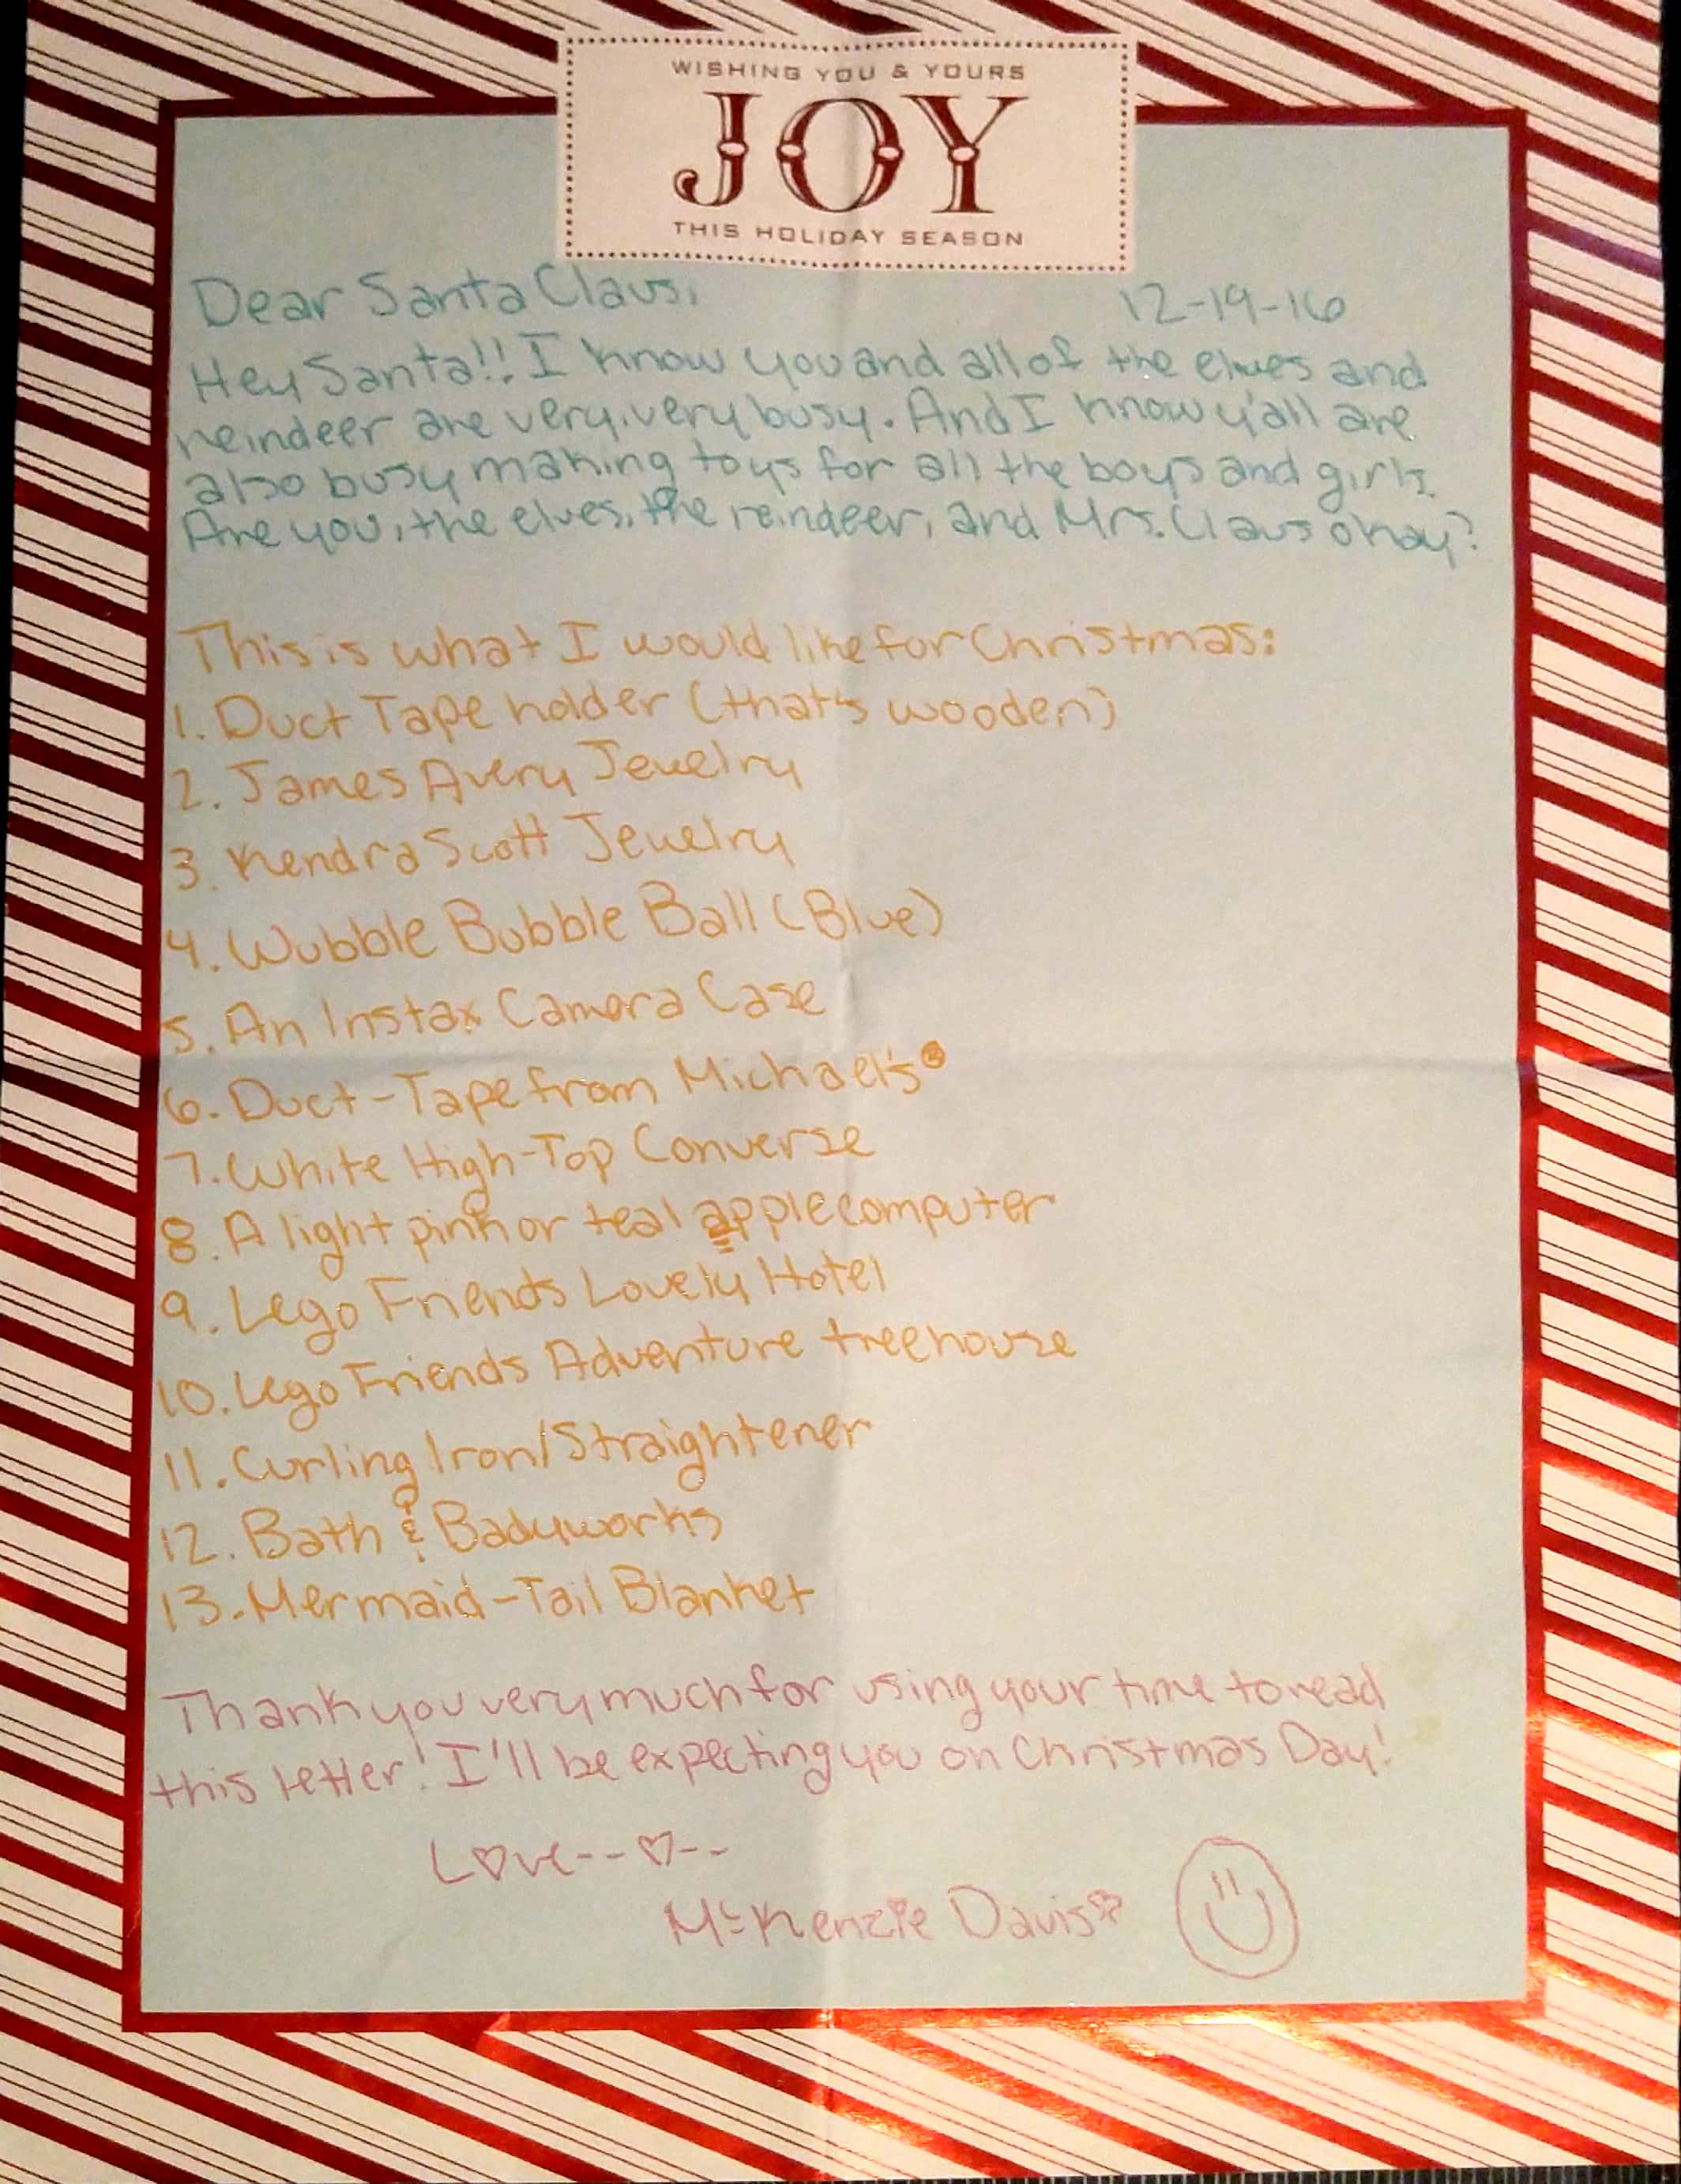 WISHING YOU & YOURS
JOY
THIS HOLIDAY SEASON
Dear Santa Claus, 12-19-16
Hey Santa!! I know you and all of the elves and
reindeer are very, very busy. And I know y'all are
also busy making toys for all the boys and girls.
Are you, the elves, the reindeer, and Mrs. Claus okay?
This is what I would like for Christmas:
1. Duct Tape holder (that's wooden)
2. James Avery Jewelry
3. Kendra Scott Jewelry
4. Wubble Bubble Ball (Blue)
5. An Instax Camera Case
6. Duct-Tape from Michael's
7. White High-Top Converse
8. A light pink or teal apple computer
9. Lego Friends Lovely Hotel
10. Lego Friends Adventure treehouse
11. Curling Iron/Straightener
12. Bath & Bodyworks
13. Mermaid-Tail Blanket
Thank you very much for using your time to read
this letter! I'll be expecting you on Christmas Day!
Love--♡--
McKenzie Davis